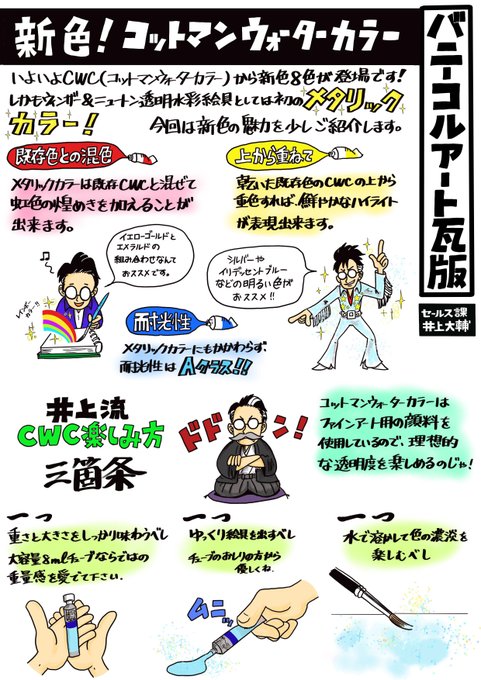 新色！コットマンウォーターカラー
バニーコルアート瓦版
セールス課
井上大輔
いよいよCWC(コットマンウォーターカラー)から新色8色が登場です！
しかもウィンザー&ニュートン透明水彩絵具としては初のメタリック
カラー！
今回は新色の魅力を少しご紹介します。
既存色との混色
メタリックカラーは既存CWCと混ぜて
虹色の煌めきを加えることが
出来ます。
上から重ねて
乾いた既存色のCWCの上から
重色すれば、鮮やかなハイライト
が表現出来ます。
イエローゴールドと
エメラルドの
組み合わせなんて
おススメです。
レインボー
カラー!!
シルバーや
イリデッセントブルー
などの明るい色が
おススメ!!
耐光性
メタリックカラーにもかかわらず、
耐光性はAクラス!!
井上流
CWC楽しみ方
三箇条
ドドーン！
コットマンウォーターカラーは
ファインアート用の顔料を
使用しているので、理想的
な透明度を楽しめるのじゃ！
一つ
重さと大きさをしっかり味わうべし
大容量8mlチューブならではの
重量感を愛でて下さい。
一つ
ゆっくり絵具を出すべし
チューブのおしりの方から
優しくね。
ムニッ
一つ
水で溶かして色の濃淡を
楽しむべし